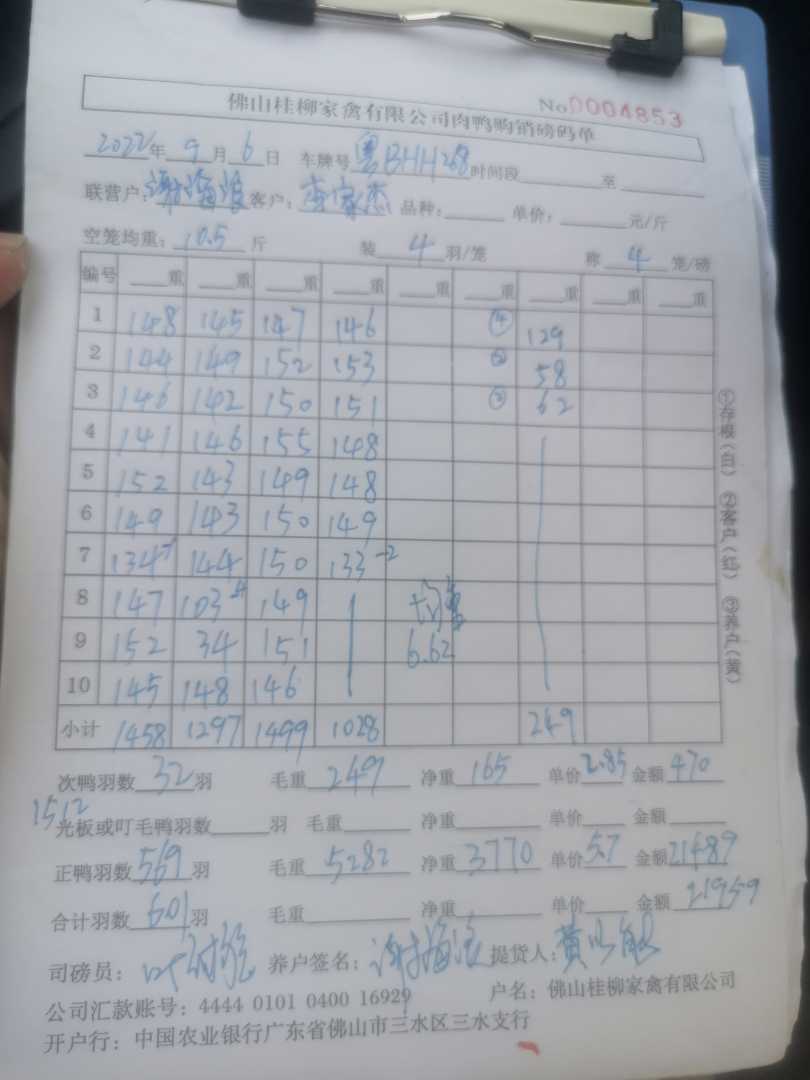 佛山桂柳家禽有限公司肉鸭购销磅码单 No 0004853
2022年 9月 6日 车牌号 粤BHH268 时间段 至
联营户: 谢海浪 客户: 李家杰 品种: 单价: 元/斤
空笼均重: 10.5 斤 装 4 羽/笼 称 4 笼/磅
编号 重 重 重 重 重 重 重 重 重
1 148 145 147 146 ④ 129
2 144 149 152 153 ② 58
3 146 142 150 151 ② 62
4 141 146 155 148
5 152 143 149 148
6 149 143 150 149
7 134 144 150 133 -2
8 147 103 -4 149 均重
9 152 34 151 6.62
10 145 148 146
小计 1458 1297 1499 1028 249
次鸭羽数 32 羽 毛重 249 净重 165 单价 2.85 金额 470
1512
光板或叮毛鸭羽数 羽 毛重 净重 单价 金额
正鸭羽数 569 羽 毛重 5282 净重 3770 单价 5.7 金额 21489
合计羽数 601 羽 毛重 净重 单价 金额 21959
司磅员: 养户签名: 谢海浪 提货人:
公司汇款账号: 4444 0101 0400 16929 户名: 佛山桂柳家禽有限公司
开户行: 中国农业银行广东省佛山市三水区三水支行
①存根(白) ②客户(红) ③养户(黄)